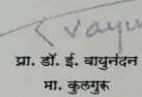 प्रा. डॉ. ई. वायुनंदन
मा. कुलगुरू